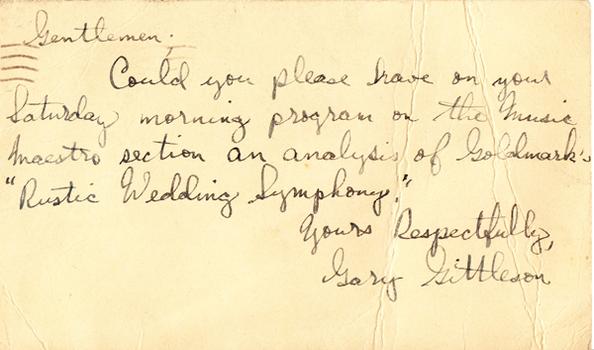 Gentlemen;
Could you please have on your
Saturday morning program on the Music
Maestro section an analysis of Goldmark's
"Rustic Wedding Symphony."
Yours Respectfully,
Gary Gittleson